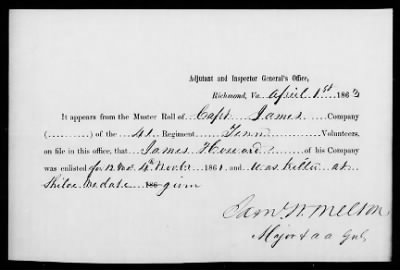 Adjutant and Inspector General's Office,
Richmond, Va. April 1st 1863
It appears from the Muster Roll of Capt James Company
(..........) of the 41 Regiment Tenn Volunteers,
on file in this office, that James Howard of his Company
was enlisted for 12 mos 4th Novbr 1861, and was killed at
Shiloh no date 186 given
Saml W. Melton
Major & a a Genl